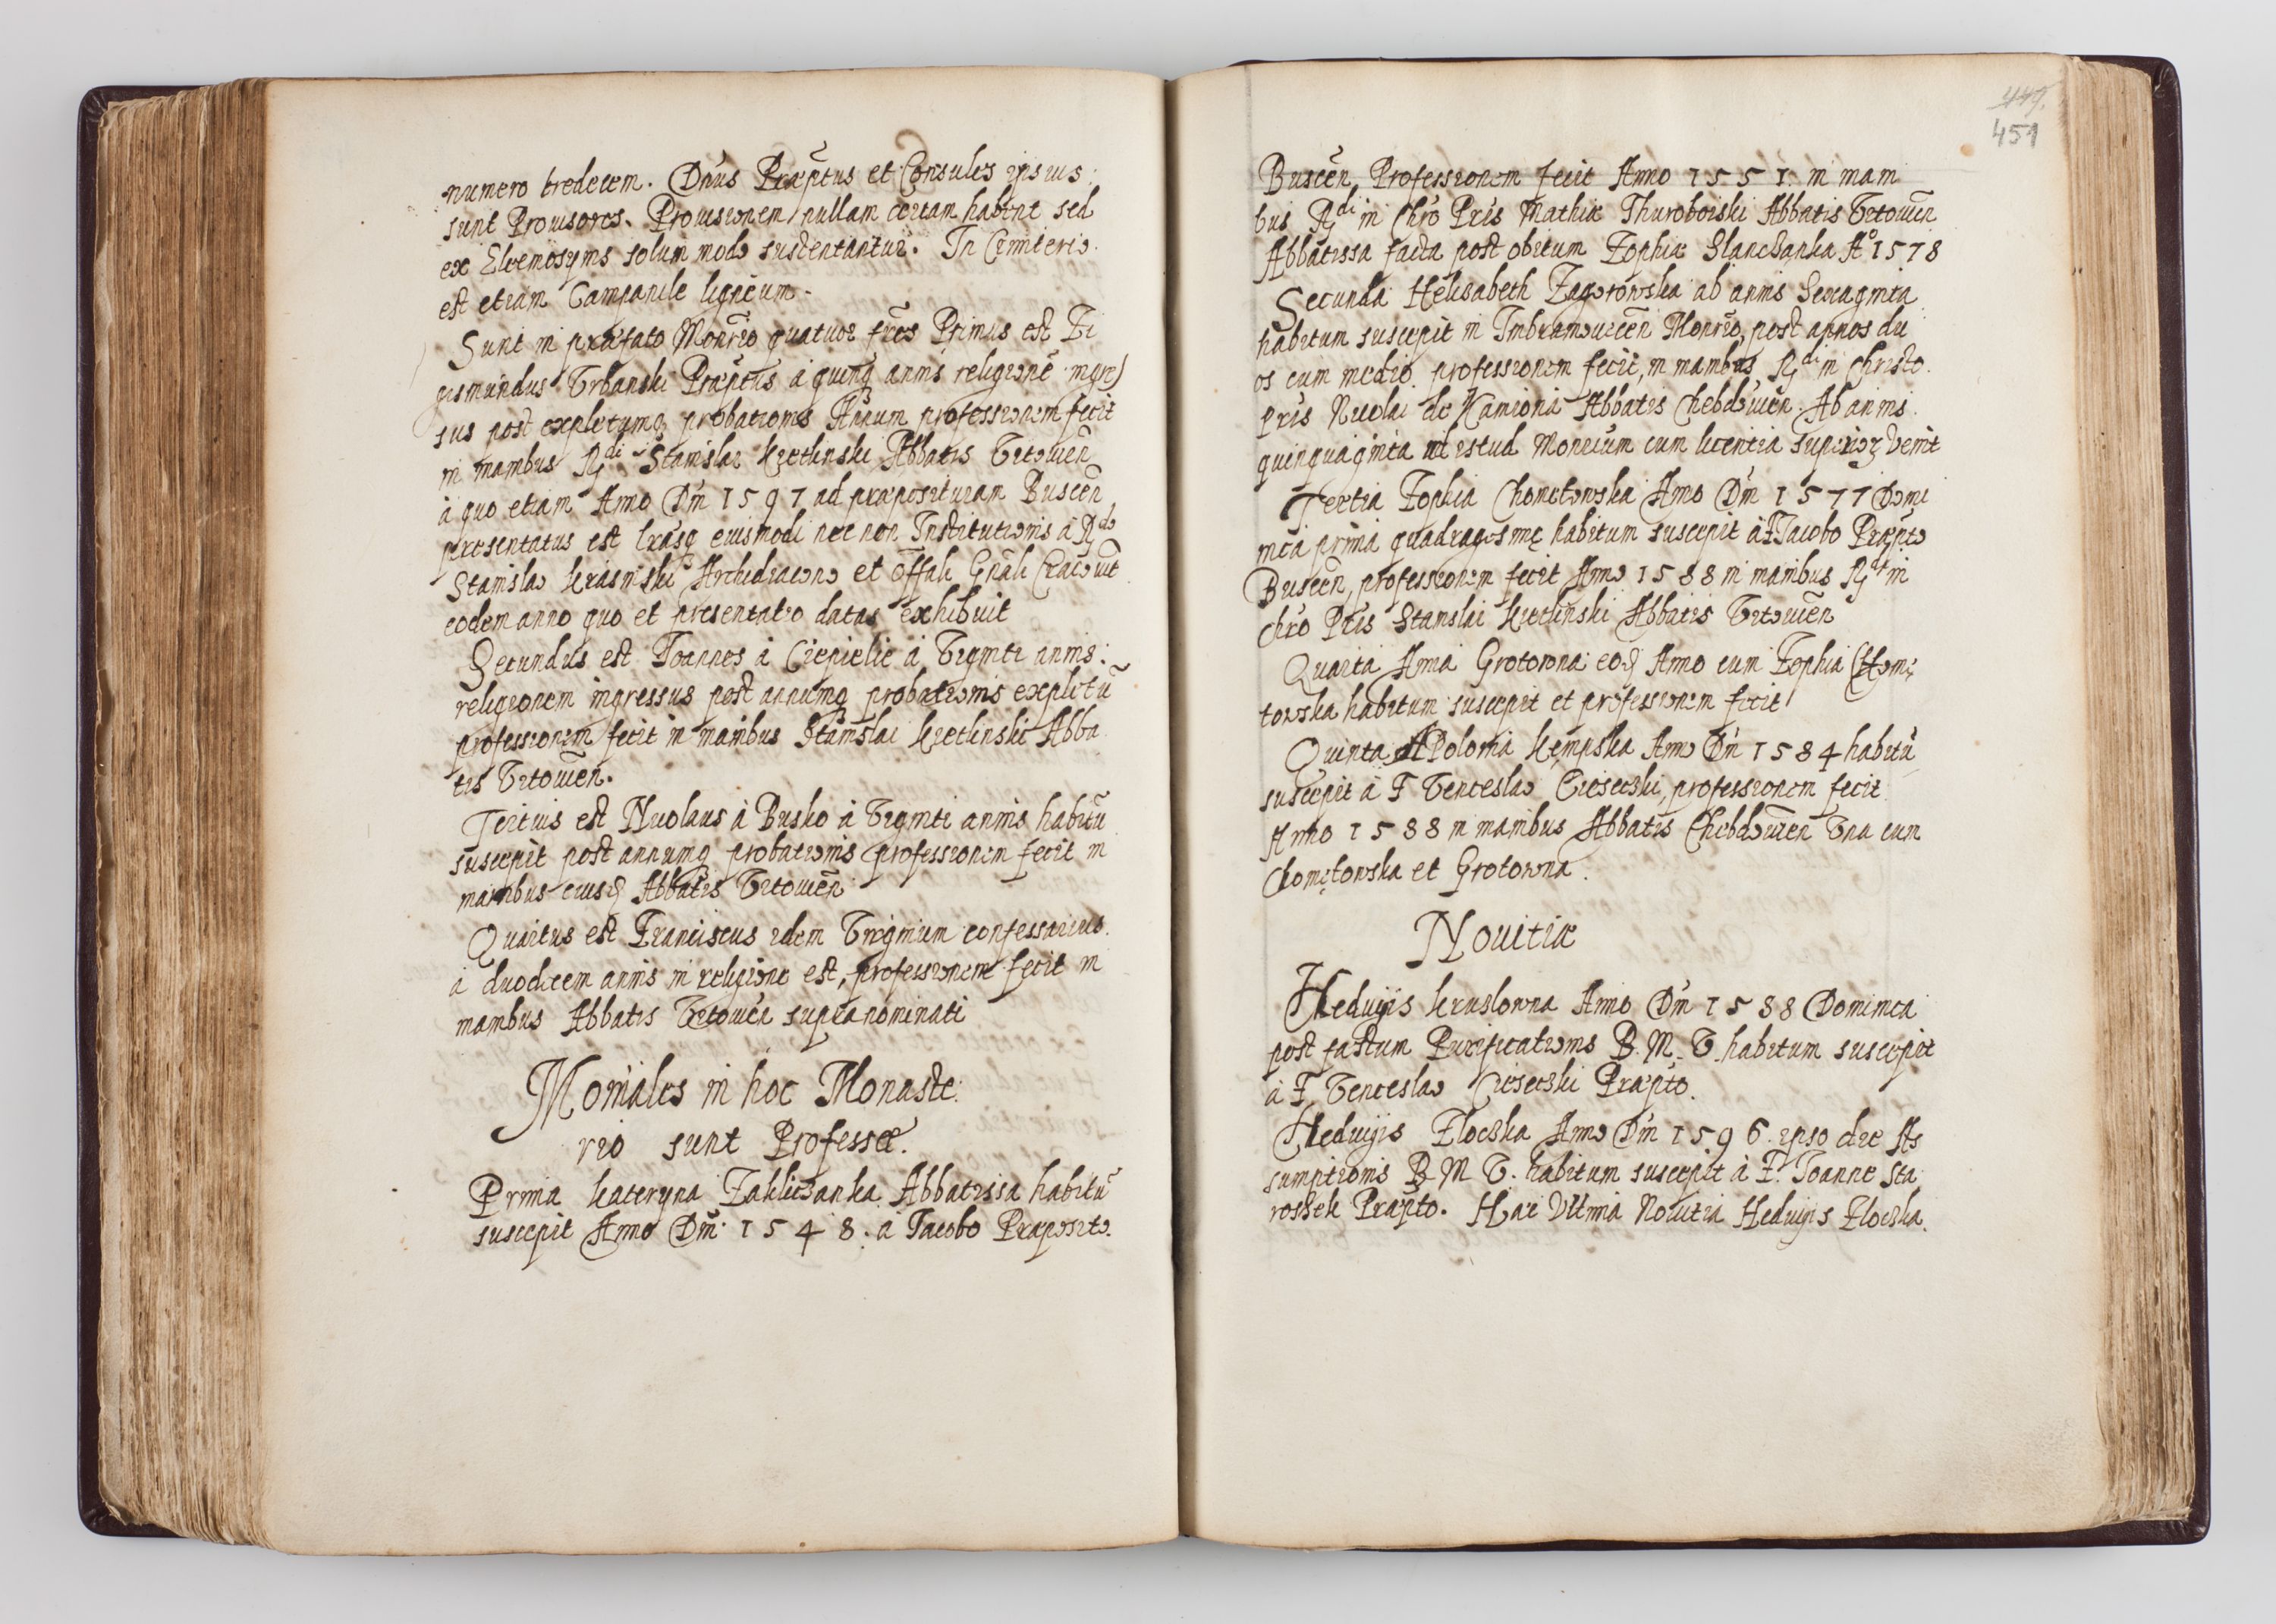 numero tredecem. Dn̄us Præp̄tus et Consules ipsius:
sunt Prouisores. Prouisionem nullam certam habent sed
ex Eleemosynis solum modo sustentantur. In Cemiterio.
est etiam Campanile ligneum.
Sunt in præfato Monrīo quatuor frēs Primus est Zi
gismundus Vrbanski Præp̄tus à quinq annis religionē ingre
sus post expletumq probationis Annum professionem fecit
in manibus Rdi Stanislai Kretlinski Abbatis Vitouien̄
à quo etiam Anno Dn̄i 1597 ad præposituram Buscen̄
presentatus est lrāsq eiusmodi nec non Institutionis à Rdo
Stanislao Krasinski Archidiacono et offāli Gnāli Cracouien̄
eodem anno quo et presentatio datas exhibuit
Secundus est Joannes à Ciepielie à Viginti annis:
religionem ingressus post annumq probationis expletū
professionem fecit in manibus Stanislai Kretlinski Abba
tis Vitouien̄.
Tertius est Nicolaus à Busko à Viginti annis habitū
suscepit post annumq probationis professionem fecit in
manibus eiusd Abbatis Vitouien̄
Quartus est Franciscus idem Virginum confessarius.
à duodecem annis in religione est, professionem fecit in
manibus Abbatis Vitouien̄ supranominati
Moniales in hoc Monaste:
rio sunt Professæ.
Prima Kateryna Zakliczanka Abbatissa habitū
suscepit Anno Dn̄i 1548. a Jacobo Præposito.
449.
451
Buscen̄, Professionem fecit Anno 1551. in mani
bus Rdi in Chrō Prīs Mathiæ Thuroboiski Abbatis Vitouien̄
Abbatissa facta post obitum Zophiæ Slanczanka Ao 1578
Secunda Helisabeth Zagorowska ab annis Sexaginta
habitum suscepit in Imbramouicen̄ Monrīo, post annos du
os cum medio professionem fecit, in manibus Rdi in Christo.
Prīs Nicolai de Kamiona Abbatis Chebdouien̄. Ab annis
quinquaginta ad istud Monrīum cum licentia superior Venit
Tertia Zophia Chomętowska Anno Dn̄i 1577 Domi
nica prima quadragesimę habitum suscepit à F Jacobo Præp̄to
Buscen̄, professionem fecit Anno 1588 in manibus Rdi in
Chrō Prīs Stanislai Kretlinski Abbatis Vitouien̄
Quarta Anna Grotowna eod Anno cum Zophia Chomę
towska habitum suscepit et professionem fecit
Quinta APolonia Kempska Anno Dn̄i 1584 habitū
suscepit à F Venceslao Ciesecski, professionem fecit
Anno 1588 in manibus Abbatis Chebdouien̄ Vna cum
Chomętowska et Grotowna.
Nouitiæ
Heduigis Kruslowna Anno Dn̄i 1588 Dominica
post fastum Purificationis B. M. V. habitum suscepit
à F. Venceslao Ciesecski Præp̄to.
Heduigis Zloczka Anno Dn̄i 1596. ipso die As
sumptionis B M V. habitum suscepit à F. Joanne Sta
rosšek Præp̄to. Hæc Vltima Nouitia Heduigis Zloczka.